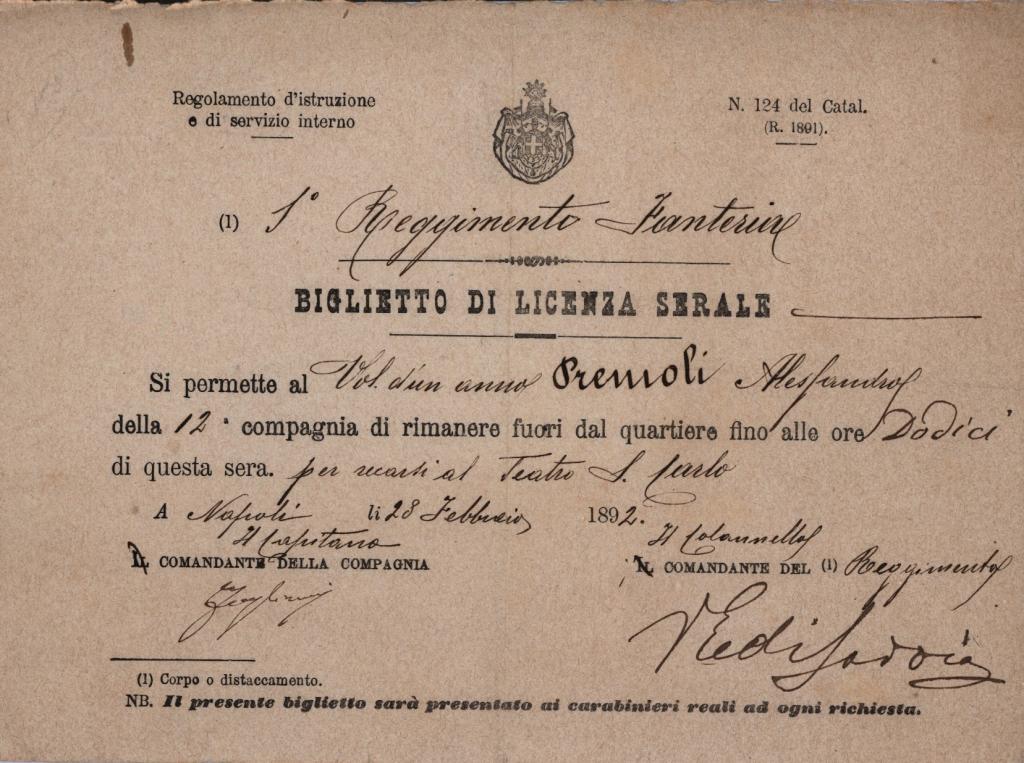 Regolamento d'istruzione
e di servizio interno
N. 124 del Catal.
(R. 1891).
(1) 1° Reggimento Fanteria
BIGLIETTO DI LICENZA SERALE
Si permette al Vol. d'un anno Premoli Alessandro
della 12ª compagnia di rimanere fuori dal quartiere fino alle ore Dodici
di questa sera. per recarsi al Teatro S. Carlo
A Napoli li 28 Febbraio 1892.
Il Capitano
IL COMANDANTE DELLA COMPAGNIA
Il Colonnello
IL COMANDANTE DEL (1) Reggimento
VE di Savoia
(1) Corpo o distaccamento.
NB. Il presente biglietto sarà presentato ai carabinieri reali ad ogni richiesta.